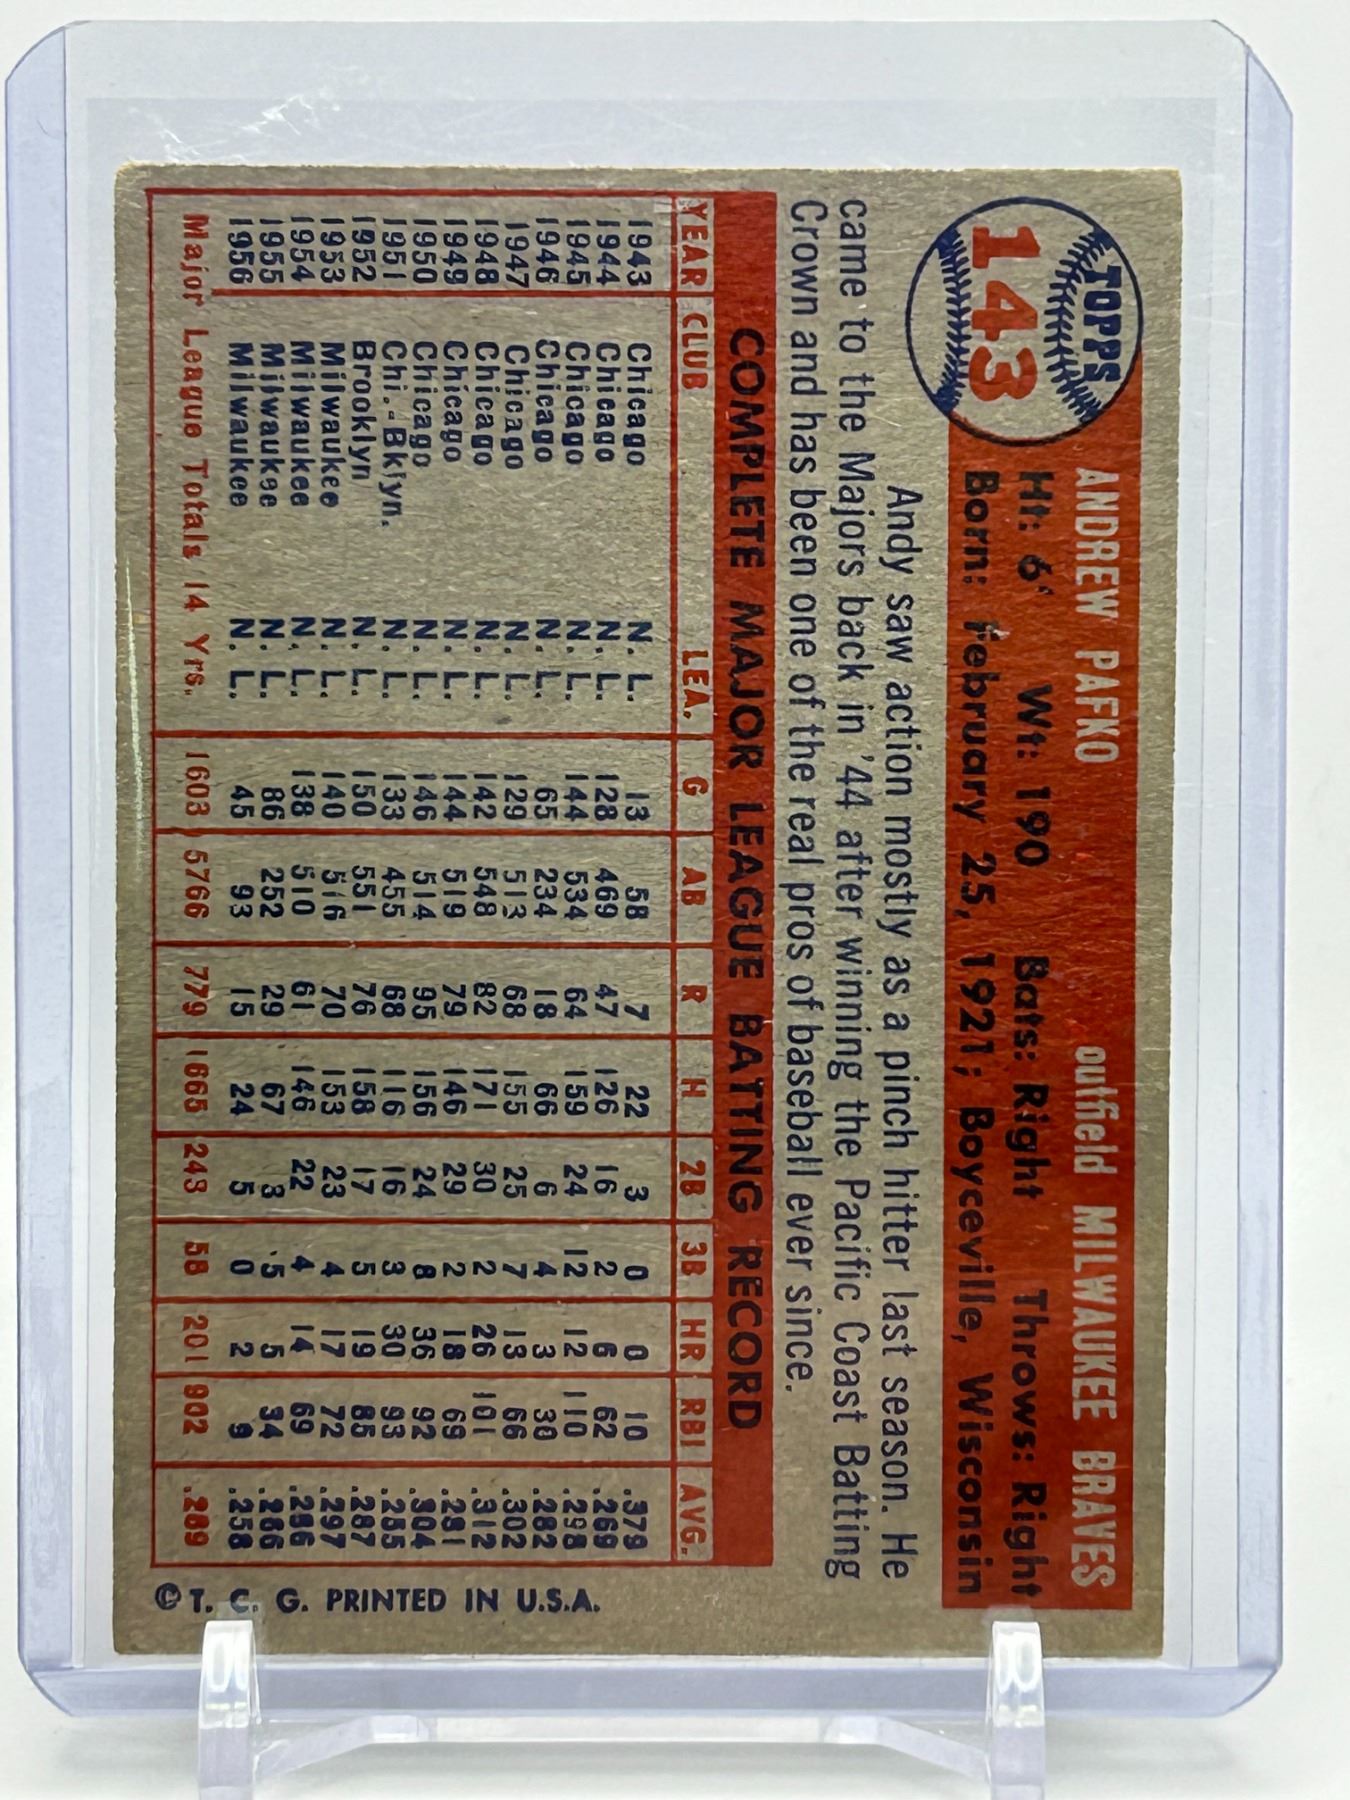 TOPPS
143
ANDREW PAFKO outfield MILWAUKEE BRAVES
Ht: 6' Wt: 190 Bats: Right Throws: Right
Born: February 25, 1921; Boyceville, Wisconsin
Andy saw action mostly as a pinch hitter last season. He
came to the Majors back in '44 after winning the Pacific Coast Batting
Crown and has been one of the real pros of baseball ever since.
COMPLETE MAJOR LEAGUE BATTING RECORD
YEAR CLUB LEA. G AB R H 2B 3B HR RBI AVG.
1943 Chicago N. L. 13 58 7 22 3 0 0 10 .379
1944 Chicago N. L. 128 469 47 126 16 2 6 62 .269
1945 Chicago N. L. 144 534 64 159 24 12 12 110 .298
1946 Chicago N. L. 65 234 18 66 6 4 3 38 .282
1947 Chicago N. L. 129 513 68 155 25 7 13 66 .302
1948 Chicago N. L. 142 548 82 171 30 2 26 101 .312
1949 Chicago N. L. 144 519 79 146 29 2 18 69 .281
1950 Chicago N. L. 146 514 95 156 24 8 36 92 .304
1951 Chi.-Bklyn. N. L. 133 455 68 116 16 3 30 93 .255
1952 Brooklyn N. L. 150 551 76 158 17 5 19 85 .287
1953 Milwaukee N. L. 140 516 70 153 23 4 17 72 .297
1954 Milwaukee N. L. 138 510 61 146 22 4 14 69 .286
1955 Milwaukee N. L. 86 252 29 67 3 5 5 34 .266
1956 Milwaukee N. L. 45 93 15 24 5 0 2 9 .258
Major League Totals 14 Yrs. 1603 5766 779 1665 243 58 201 902 .289
© T. C. G. PRINTED IN U.S.A.